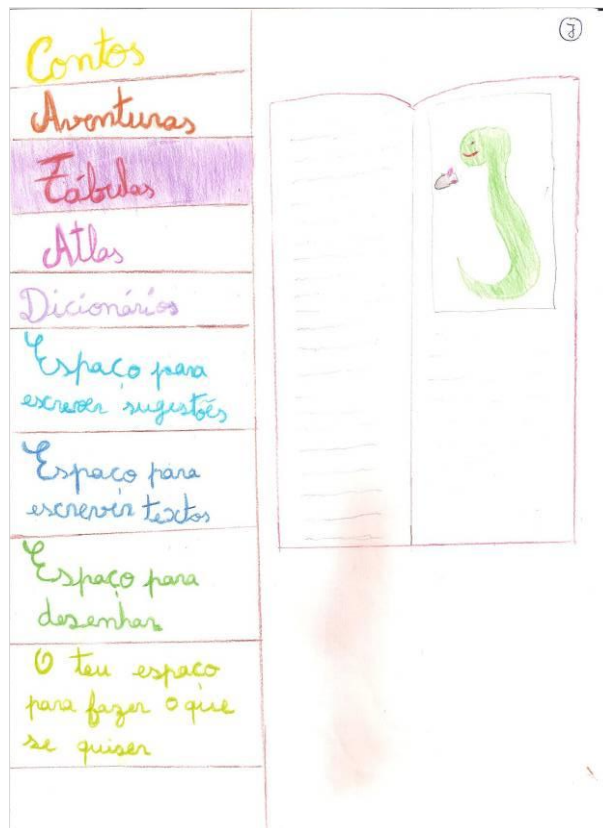 Contos
Aventuras
Fábulas
Atlas
Dicionários
Espaço para
escrever sugestões
Espaço para
escrever textos
Espaço para
desenhar
O teu espaço
para fazer o que
se quiser